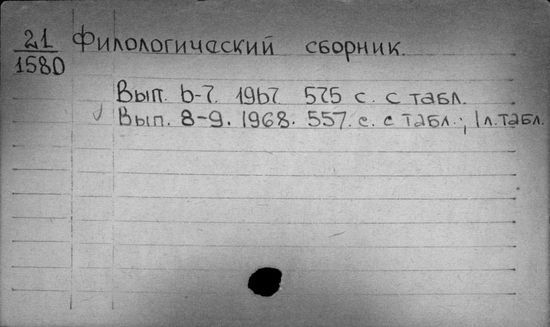 21
1580
Филологический сборник.
Вып. 6-7. 1967 575 с. с табл.
Вып. 8-9. 1968. 557. с. с табл.; 1 л. табл.